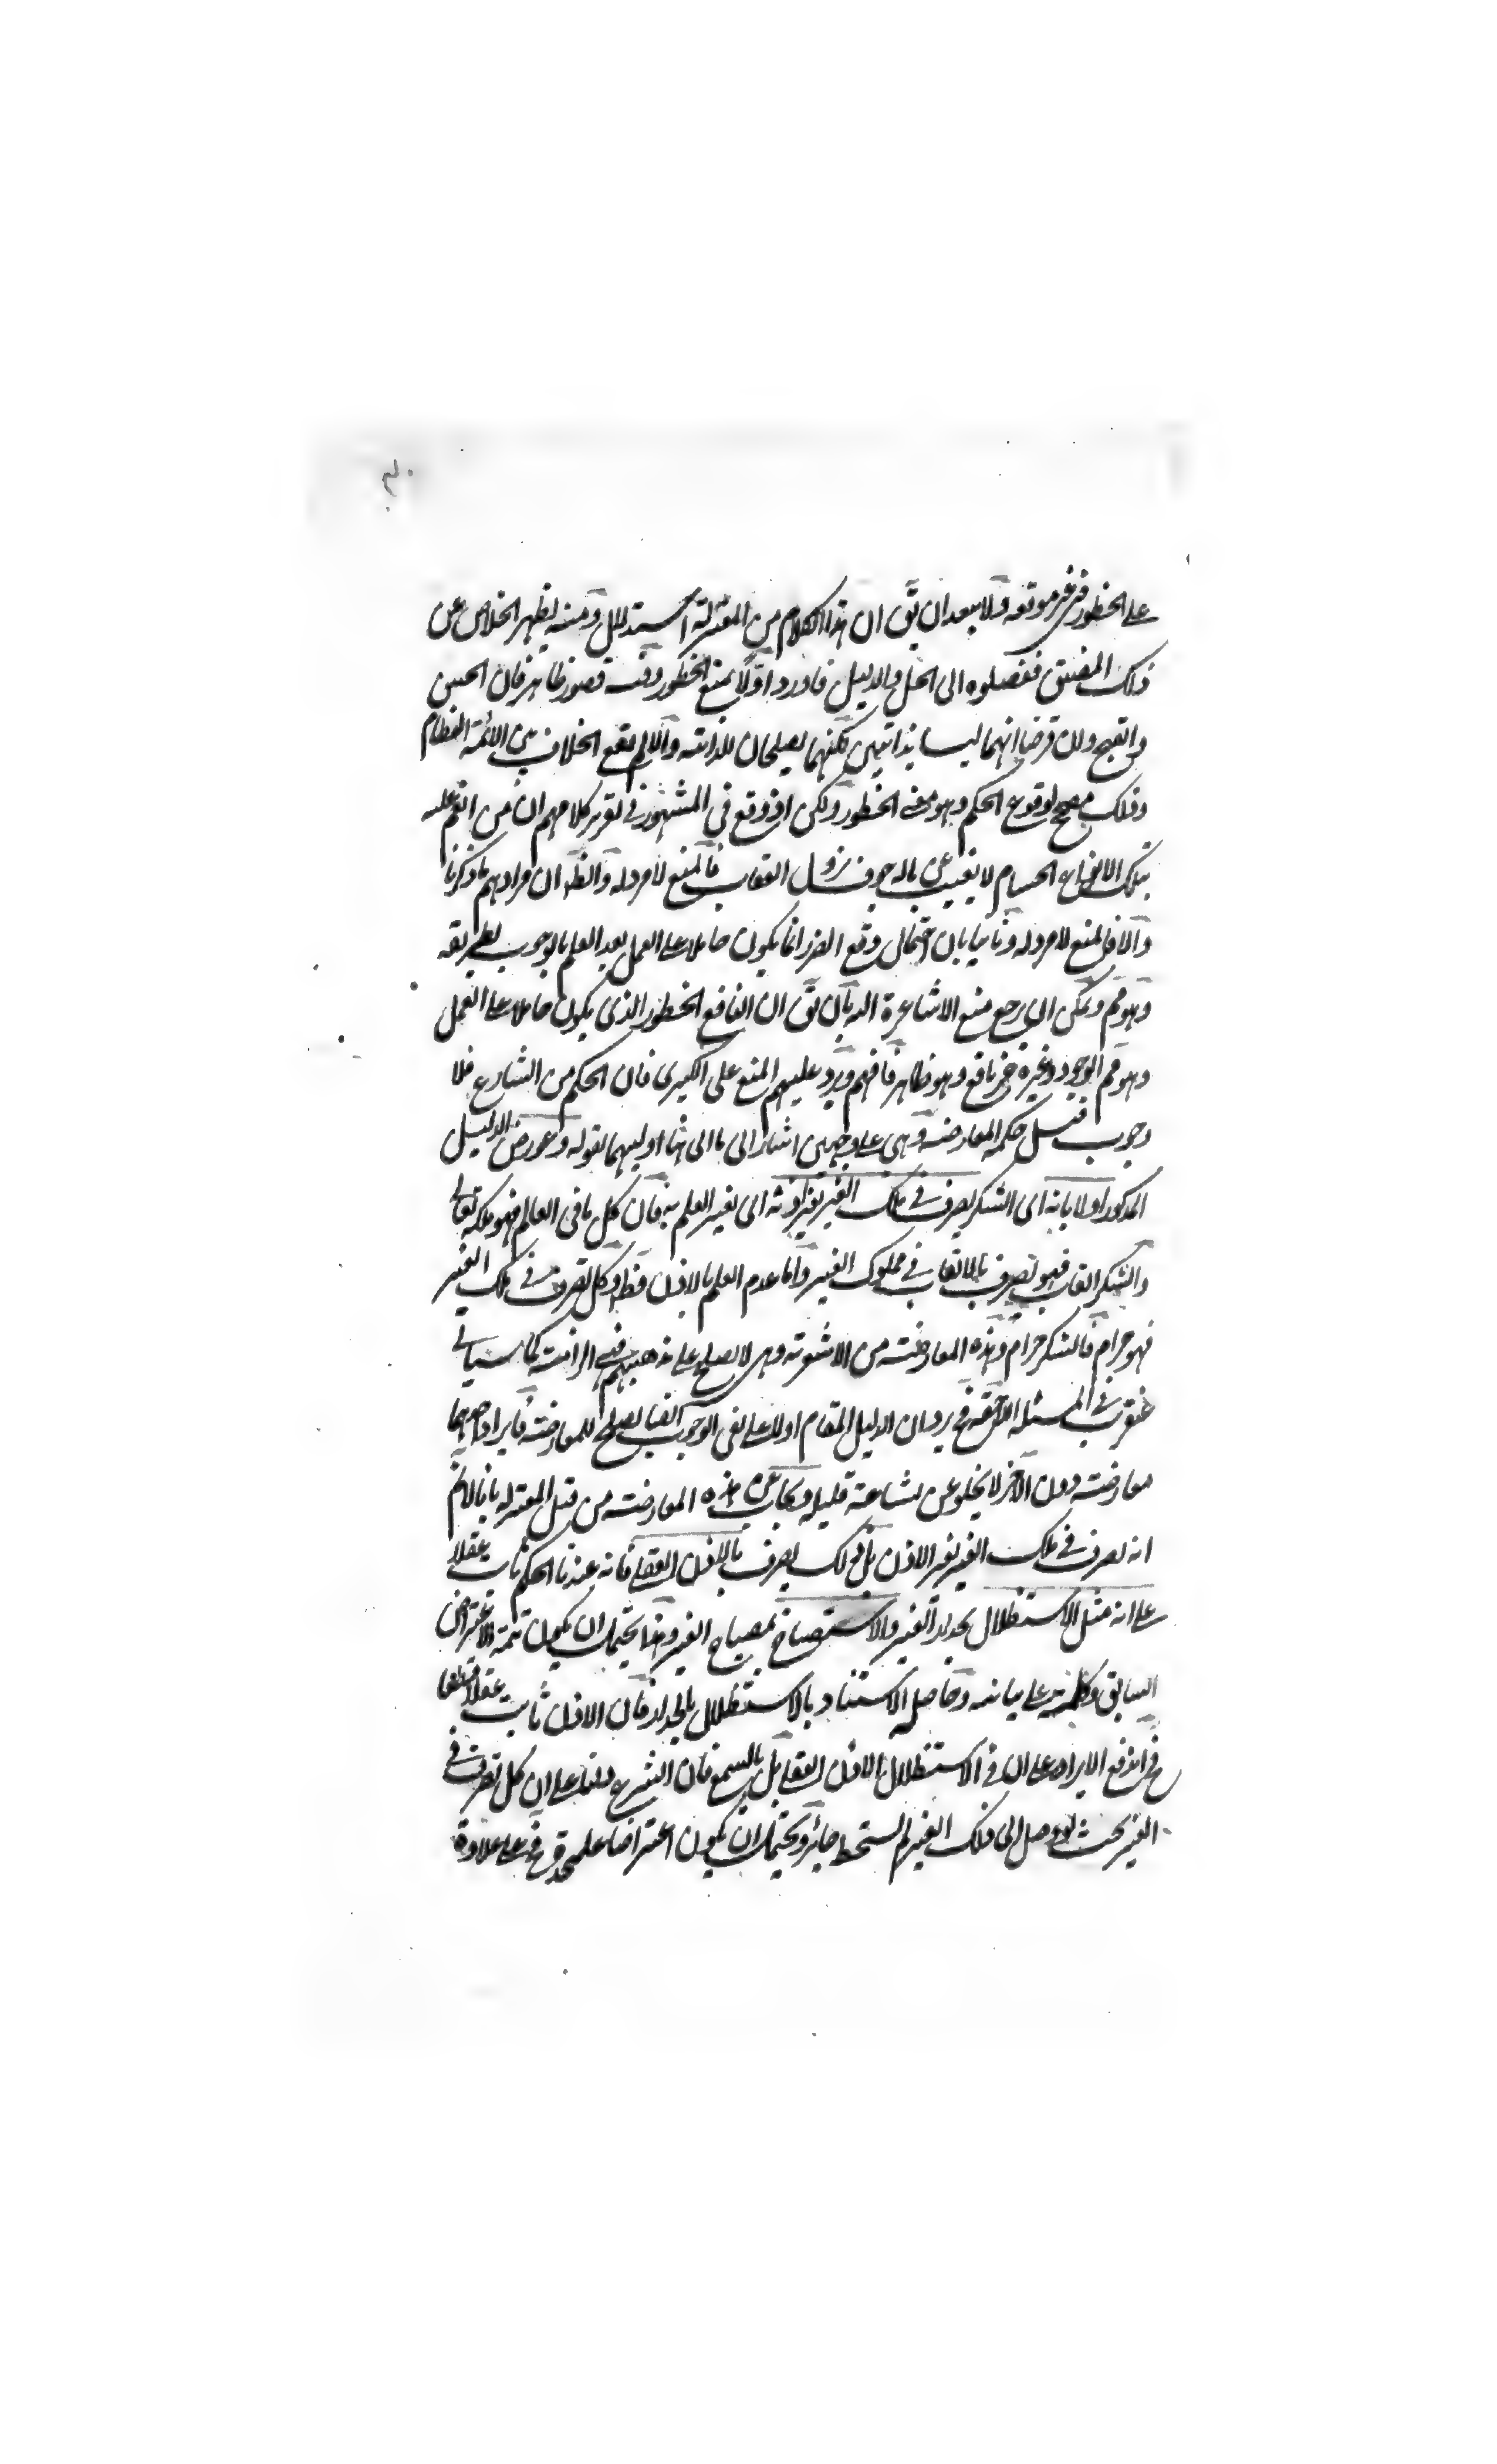 على الخطور في غير موقعه ولا يبعد ان يق ان هذا الكلام من المعتزلة استدلال ومنه يظهر الخلاص عن
ذلك المضيق ففصلوه الى الحل والدليل فاورد اولا بمنع الخطور وفيه قصور ظاهر فان الحسن
والقبح ولان فرضا انهما ليسا بذاتيين لكنهما يصلحان للذاتية والا لم يقع الخلاف بين الائمة العظام
وذلك مصحح لوقوع الحكم وهو معنى الخطور ولكن اذ وقع في المشهور في تقرير كلامهم ان من انعم عليه
بتلك الانواع الجسام لا يغيب عن باله خوف نزول العقاب فالمنع لا مرد له والظ ان مرادهم ما ذكرنا
والا فالمنع لا مرد له وثانيا بان احتمال وقع الضرر انما يكون حاملا على العمل بعد العلم بالوجوب بطريقه
وهو مم ويمكن ان يرجع منع الاشاعرة اليه بان يق ان النافع الخطور الذي يكون حاملا على العمل
وهو مم الوجود وغيره غير نافع وهو ظاهر فافهم ويرد عليهم المنع على الكبرى فان الحكم من الشارع فلا
وجوب قبل حكمه المعارضة وهي على وجهين اشار الى اوليهما بقوله وعورض الدليل
المذكور اولا بانه اى الشكر تصرف في ملك الغير بغير اذنه اى بغير العلم به فان كل ما في العالم فهو ملكه تعالى
والشكر اتعاب فهو تصرف بالاتعاب في مملوك الغير واما عدم العلم بالاذن فظ وكل تصرف في ملك الغير
فهو حرام فالشكر حرام وهذه المعارضة من الاشعرية وهي لا تصلح على مذهبهم فهي الزامية كما سياتي
عنقريب في المسئلة اللاحقة فح يرد ان الدليل المقام اولا على نفى الوجوب ايضا يصلح للمعارضة فايراد احديهما
معارضة دون الآخر لا يخلو عن بشاعة قليلة ويجاب عن هذه المعارضة من قبل المعتزلة بانا لانم
انه تصرف في ملك الغير بغير الاذن بل ذلك تصرف بالاذن العقلي فانه عندنا الحكم ثابت عقلا
على انه مثل الاستظلال بجدار الغير والاستصباح بمصباح الغير وهذا يحتمل ان يكون تتمة الاعتراض
السابق وكلمة على بيانيه وحاصله الاستناد بالاستظلال بالجدار فان الاذن ثابت عقلا قطعا
فح اندفع الايراد على ان في الاستظلال الاذن العقلي بل بالسمع فان الشرع دلنا على ان كل تصرف في
الغير بحيث لو وصل الى ذلك الغير لم يستحط جائز ويحتمل ان يكون اعتراضا على حدة فح على علاوة